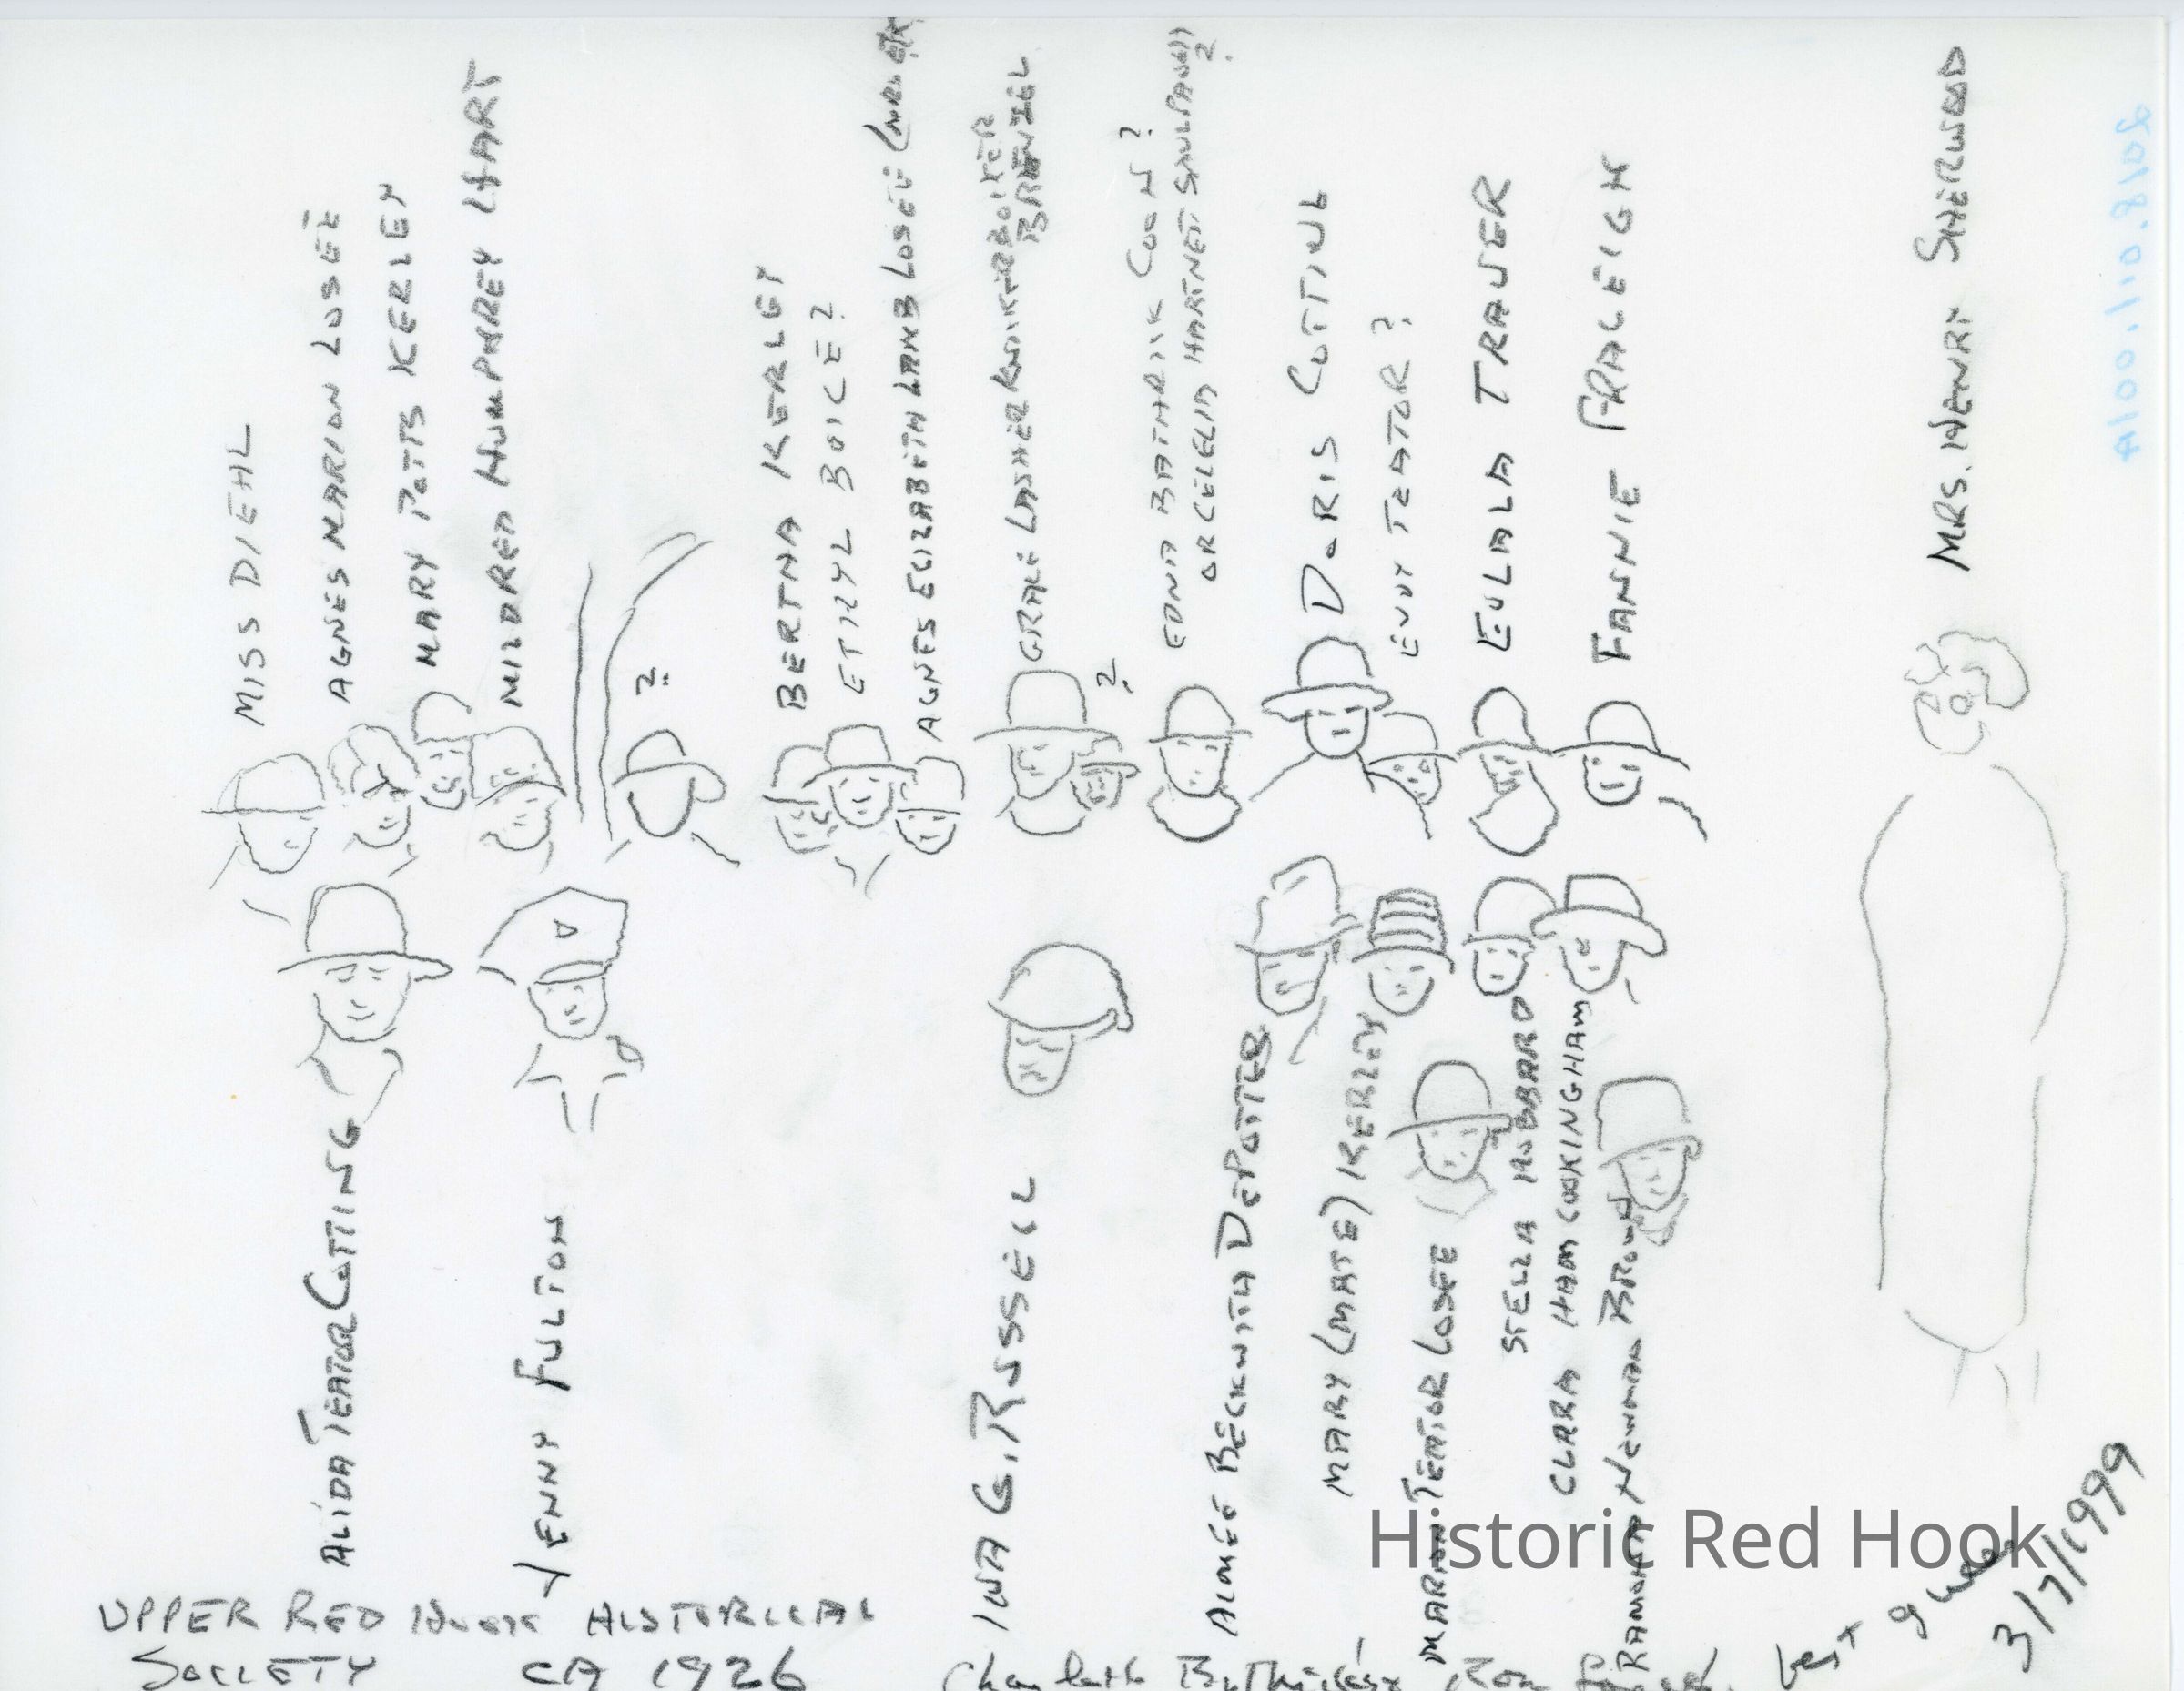 MISS DIEHL
AGNES MARION LOSEE
MARY POTTS KERLEY
MILDRED HUMPHREY HART
?
BERTHA KERLEY
ETHYL BOICE?
AGNES ELIZABETH LAMB LOSEE
GRACE LASHER KNICKERBOCKER
BRENZEL
?
EDNA BATHRIK COON?
OR CELELIA HARTNET SAULPAUGH
?
DORIS COTTING
EVVY TEATOR?
EULALA TRAVER
FANNIE FRALEIGH
MRS. HENRY SHERWOOD
A100.1.10.8105
ALIDA TEATOR COTTING
JENNY FULTON
INA G. RUSSELL
ALMEE BECKWITH DEPOTTER
MARY (MATE) KERLEY
MARION TEATOR LOSEE
STELLA HOBBARD
CLARA HAM COOKINGHAM
RAMONA NEWMAN BROWN
UPPER RED HOOK HISTORICAL
SOCIETY CA 1926
best guess
3/7/1999
Historic Red Hook